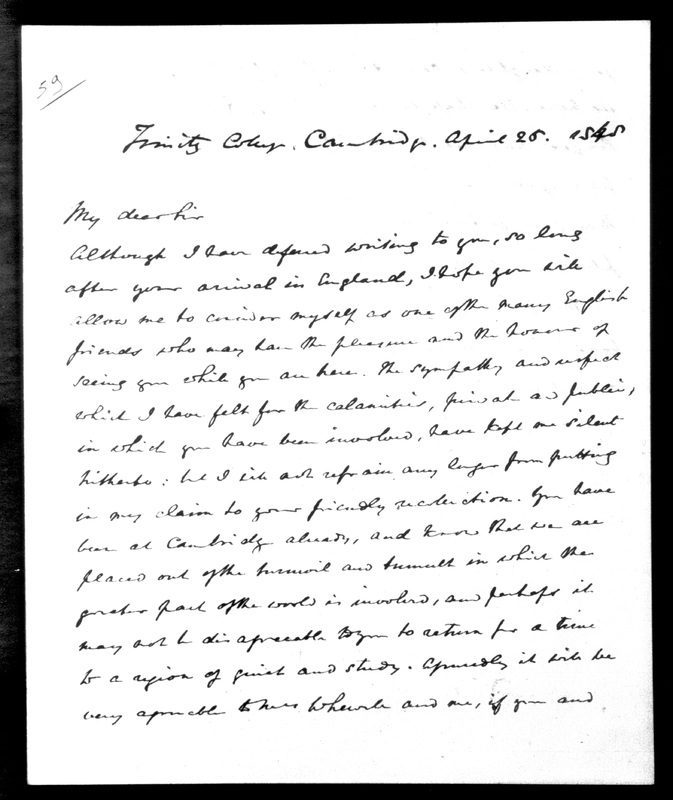 59
Trinity College. Cambridge. April 25. 1848
My dear Sir
Although I have defered writing to you, so long
after your arrival in England, I hope you will
allow me to consider myself as one of the many English
friends who may have the pleasure and the honour of
seeing you while you are here. The sympathy and respect
which I have felt for the calamities, private and public,
in which you have been involved, have kept me silent
hitherto: but I will not refrain any longer from putting
in my claim to your friendly recollection. You have
been at Cambridge already, and know that we are
placed out of the turmoil and tumult in which the
greater part of the world is involved, and perhaps it
may not be disagreeable to you to return for a time
to a region of quiet and study. Assuredly it will be
very agreeable to Mrs Whewell and me, if you and